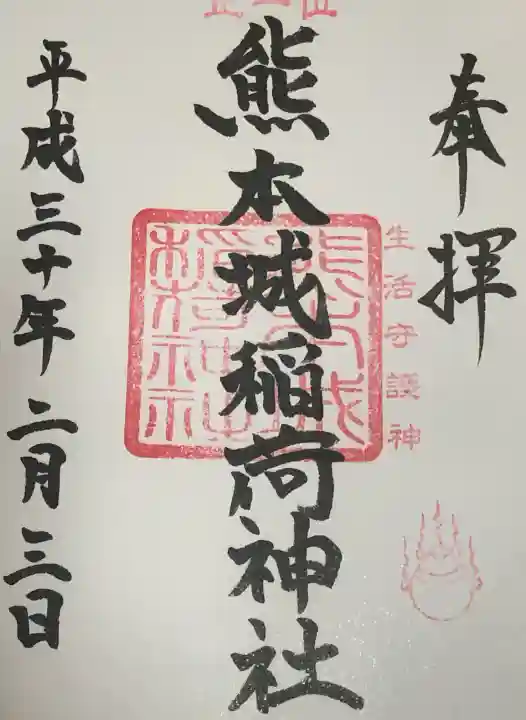 奉拝
生活守護神
熊本城稲荷神社
平成三十年二月三日